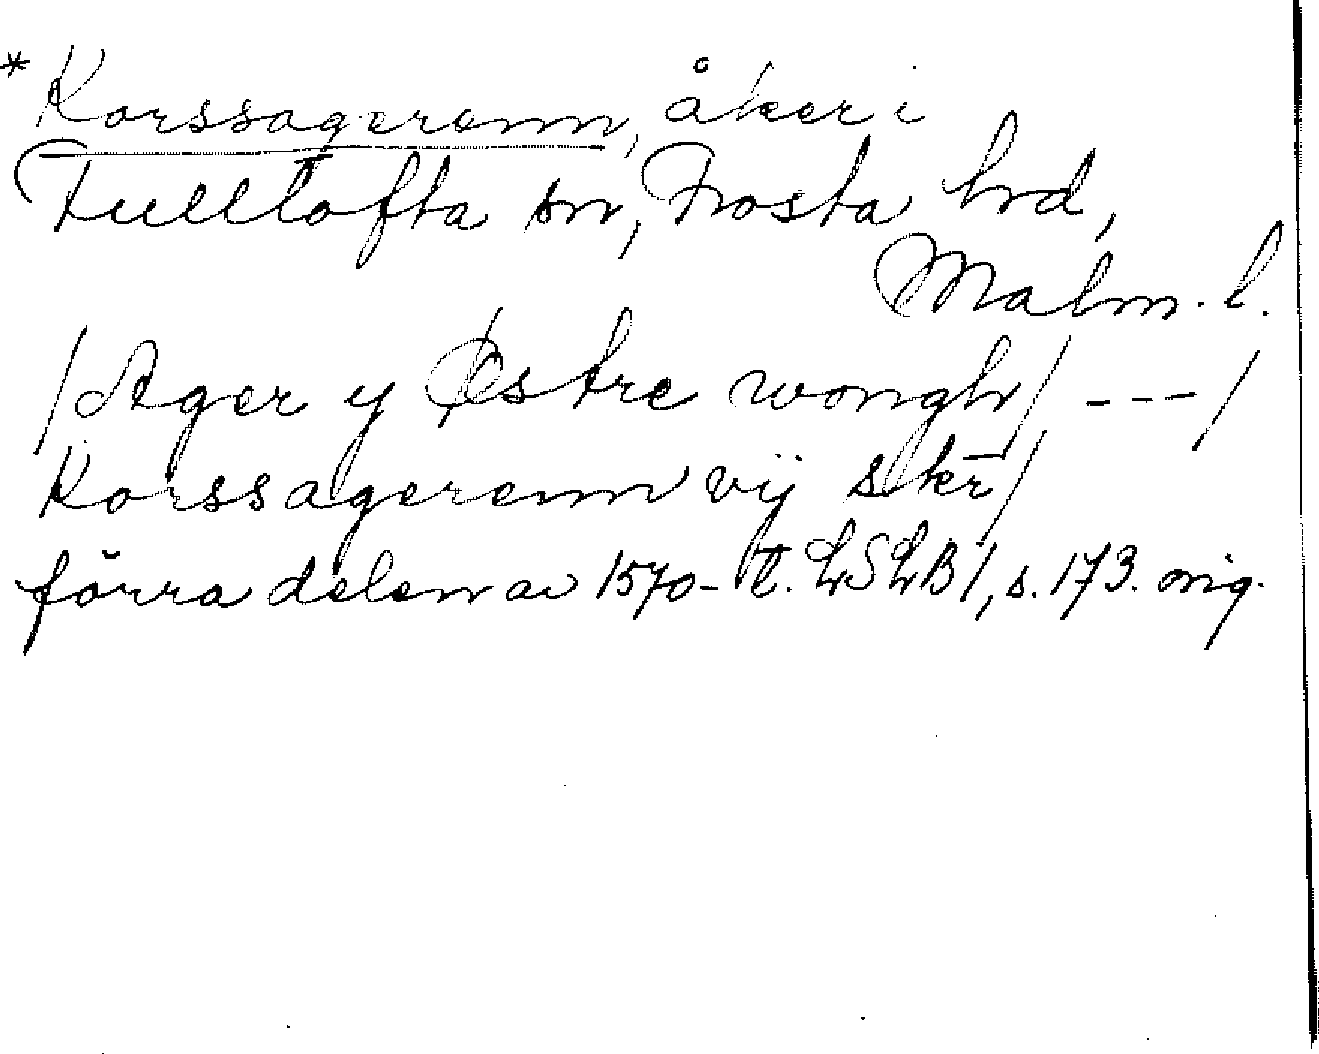 * Korssagerenn, åker i
Fulltofta sn, Frosta hrd,
Malm. l.
/Ager y Østre wongh/ ---/
Korssagerenn vij skr̄/
förra delen av 1570-t. LSLB 1, s. 173. orig.